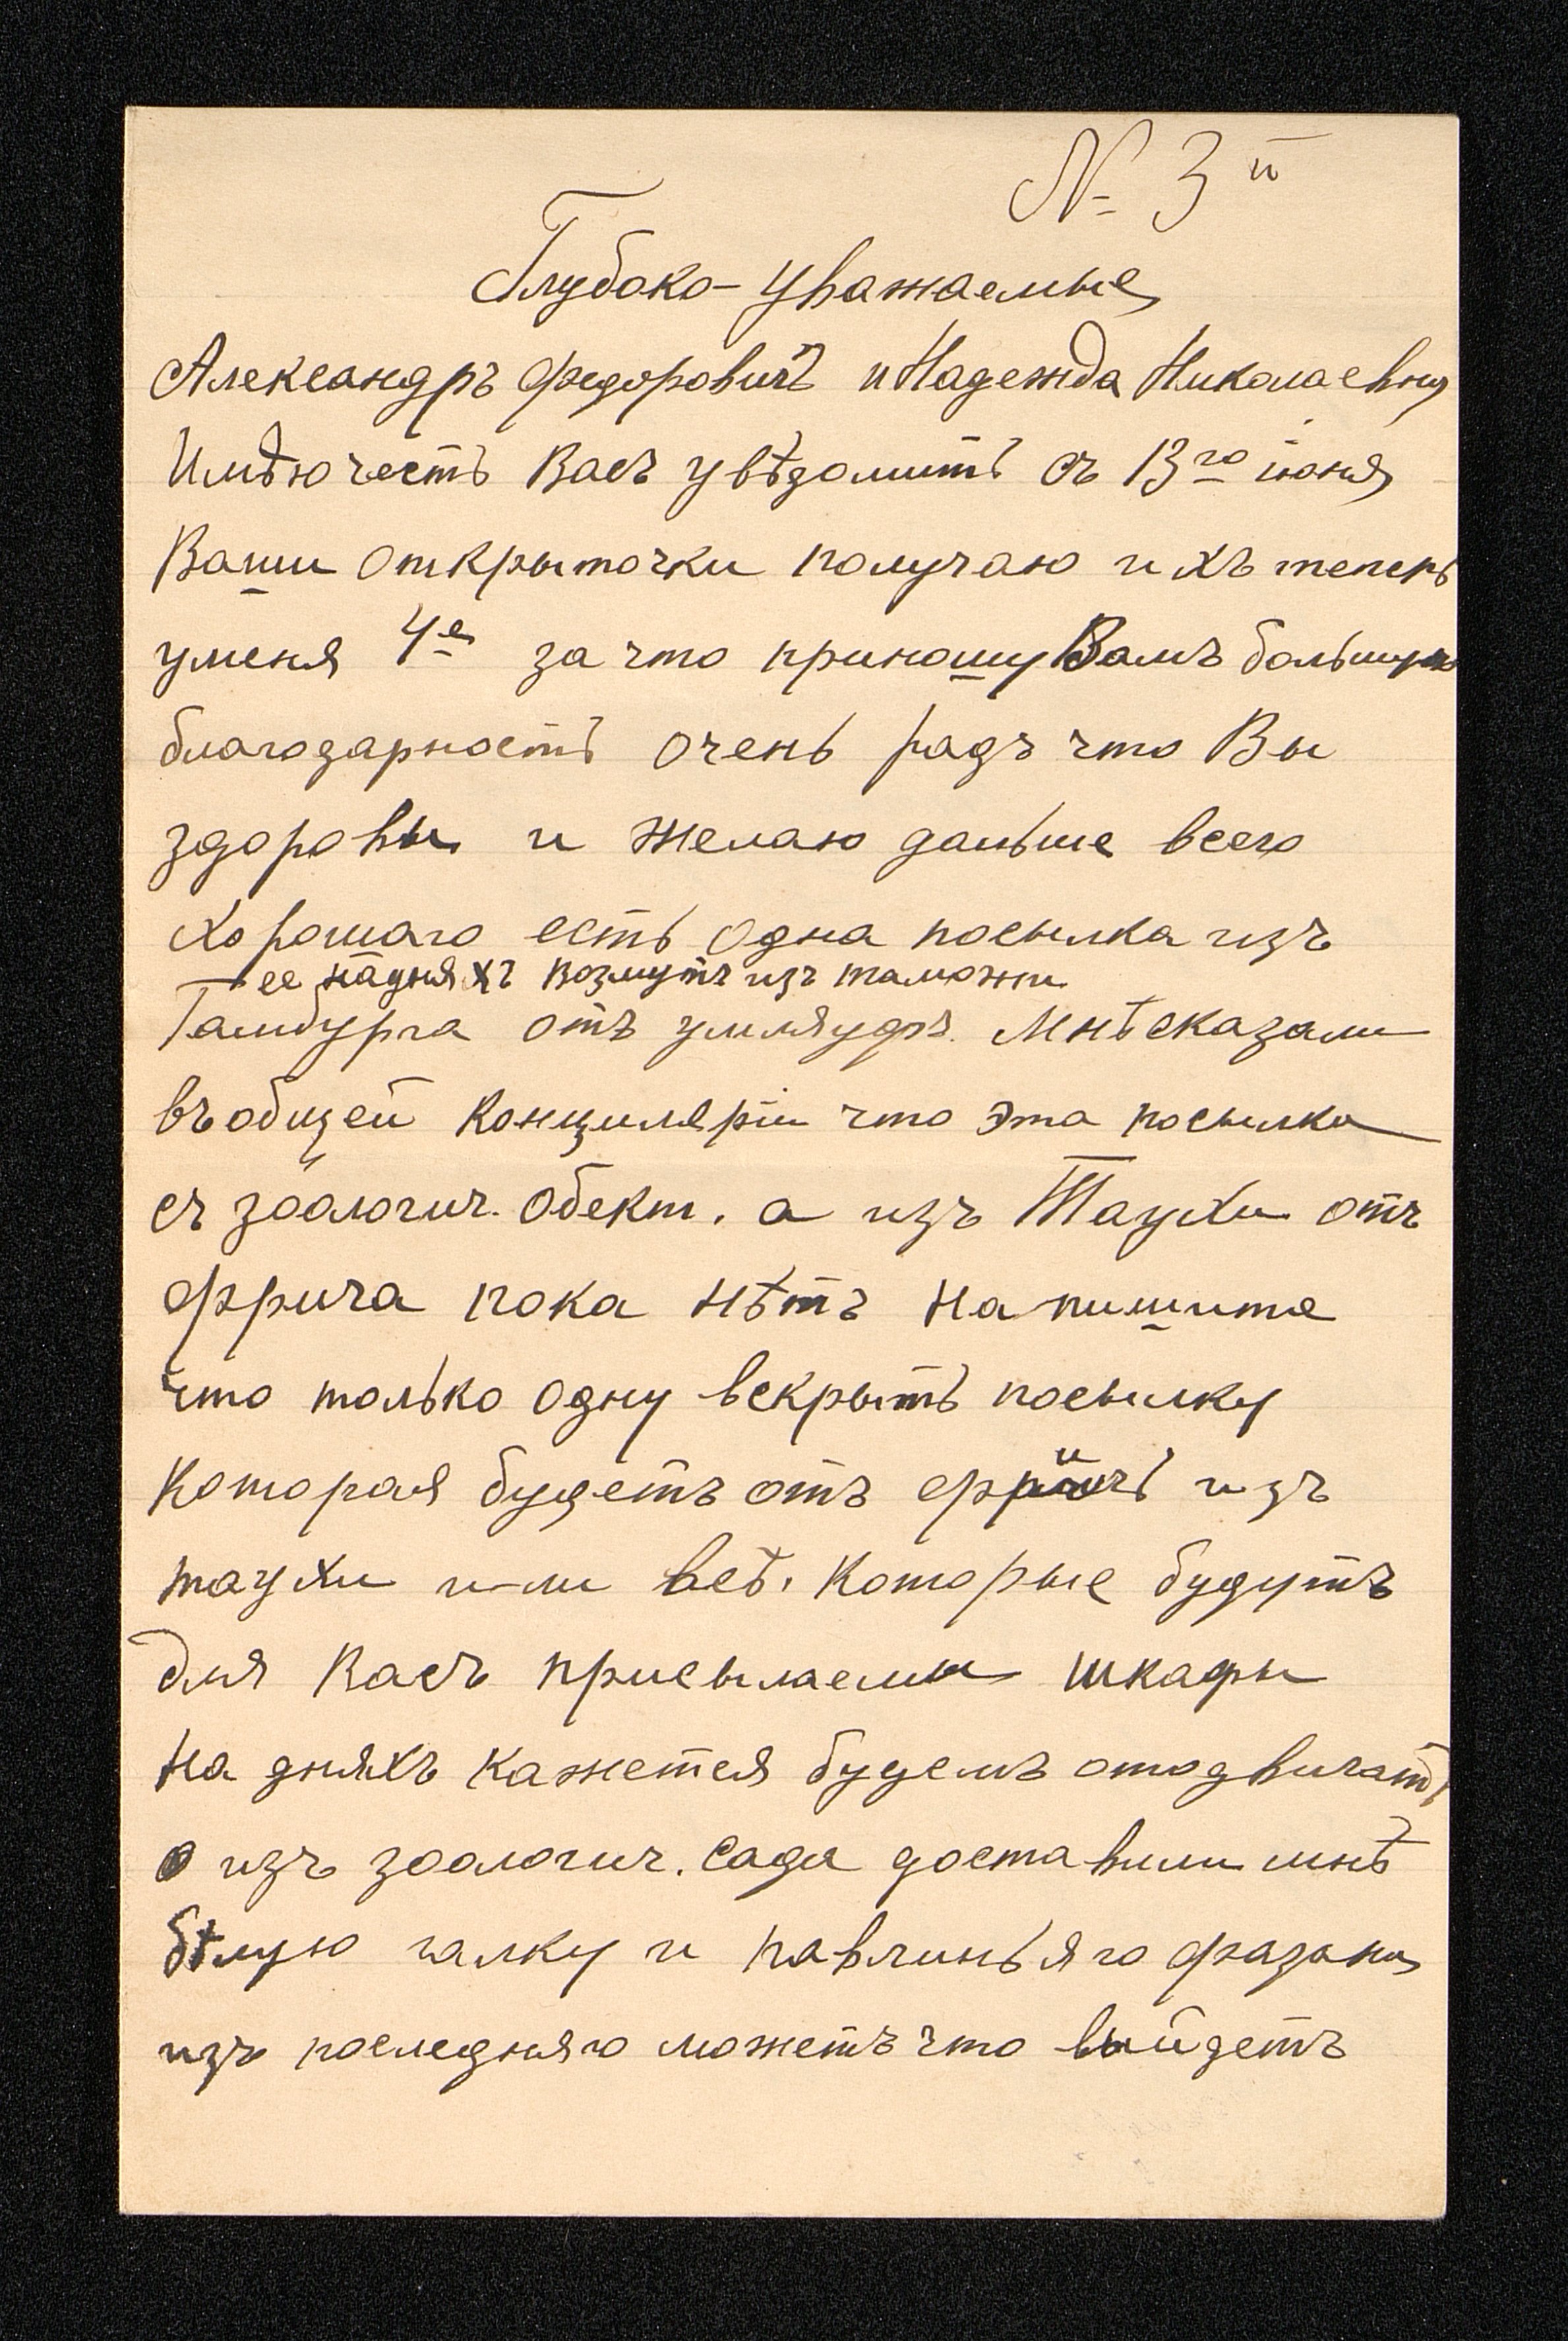 № 3й
Глубоко-уважаемые
Александръ Федоровичъ и Надежда Николаевна
Имѣю честь Васъ увѣдомить съ 13го іюня
Ваши открыточки получаю ихъ теперь
у меня 4е за что приношу Вамъ большую
благодарность очень радъ что Вы
здоровы и желаю дальше всего
хорошаго есть одна посылка изъ
ее надняхъ возмутъ изъ таможни
Гамбурга отъ умляуфъ. Мнѣ сказали
въ общей канцилярiи что эта посылка
съ зоологич. Обект. а изъ Таухи отъ
Фрича пока нѣтъ напишите
что только одну вскрыть посылку
которая будетъ отъ изъ
таухи или всѣ. которые будутъ
для Васъ присылаемы шкафы
на дняхъ кажется будемъ отодвигать
изъ зоологич. Сада доставили мнѣ
бѣлую галку и павлиньяго фазана
изъ последняго можетъ что выйдетъ